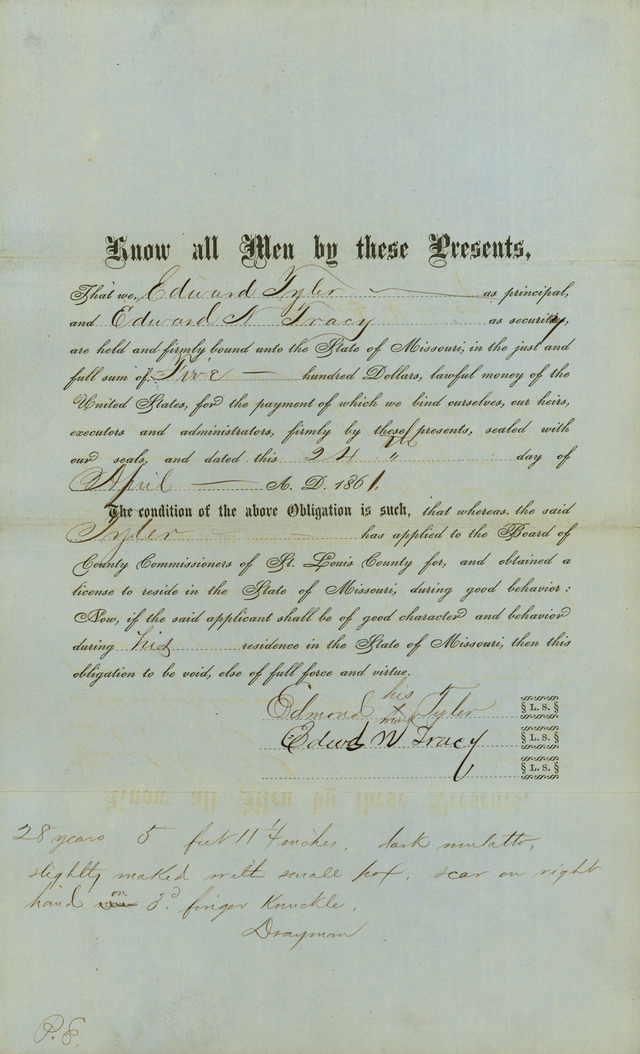 Know all Men by these Presents,
That we, Edward Tyler as principal,
and Edward N Tracy as security,
are held and firmly bound unto the State of Missouri, in the just and
full sum of Five hundred Dollars, lawful money of the
United States, for the payment of which we bind ourselves, our heirs,
executors and administrators, firmly by these presents, sealed with
our seals, and dated this 24 th day of
April A. D. 1861.
The condition of the above Obligation is such, that whereas, the said
Tyler has applied to the Board of
County Commissioners of St. Louis County for, and obtained a
license to reside in the State of Missouri, during good behavior:
Now, if the said applicant shall be of good character and behavior
during his residence in the State of Missouri, then this
obligation to be void, else of full force and virtue.
his
Edmond x Tyler L. S.
mark
Edwd N Tracy L. S.
L. S.
28 years 5 feet 11 1/4 inches, dark mulatto,
slightly maked with small pox, scar on right
hand on 3d finger Knuckle,
Drayman